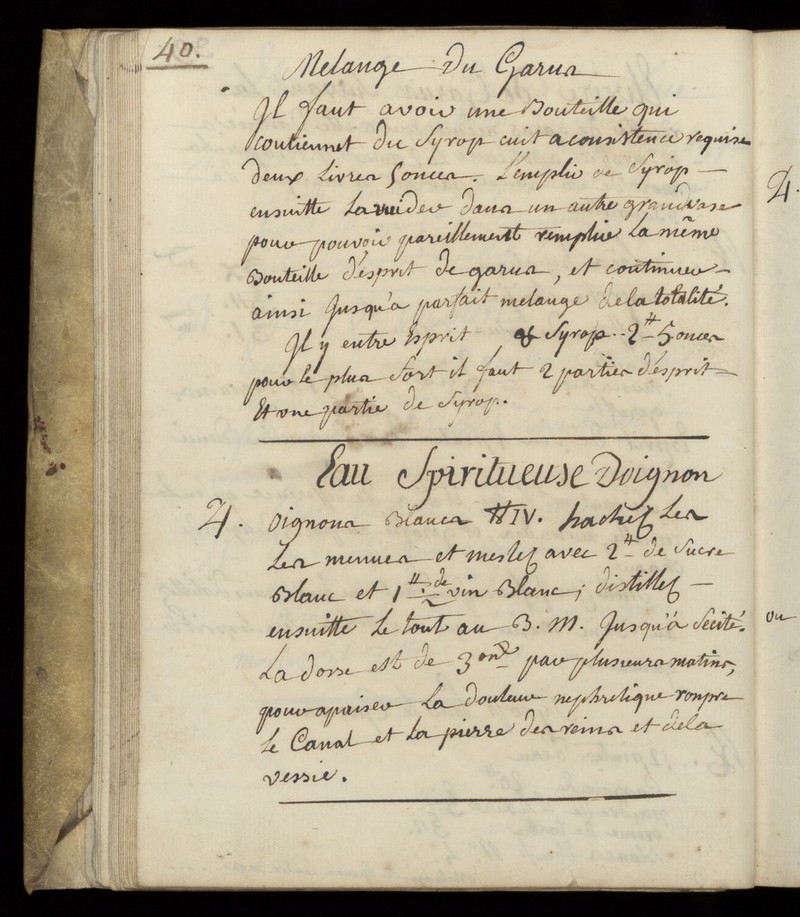 40.
Melange Du Garus
Il faut avoir une Bouteille qui
contiennet Du Syrop cuit a consistence requise
deux Livres 5 onces. L'emplir de Syrop
ensuitte La vuider dans un autre grand vase
pour pouvoir pareillement remplir La même
Bouteille d'esprit de garus, et continuer
ainsi Jusqu'a parfait melange dela totalité.
Il y entre Esprit & Syrop .. 2 ℔ 5 onces
pour le plus fort il faut 2 parties d'esprit
Et une partie de Syrop.
Eau Spiritueuse Doignon
♃. Oignons Blancs ℔ IV. hachez Les
Les menues et meslez avec 2 ℔ de Sucre
Blanc et 1 ℔ ½ de vin Blanc ; distillez
ensuitte Le tout au B. M. Jusqu'à Secité.
La dosse est de 3 onc. par plusieurs matins,
pour apaiser La douleur nephretique rompre
Le Canal et La pierre des reins et dela
vessie.
♃.
ou